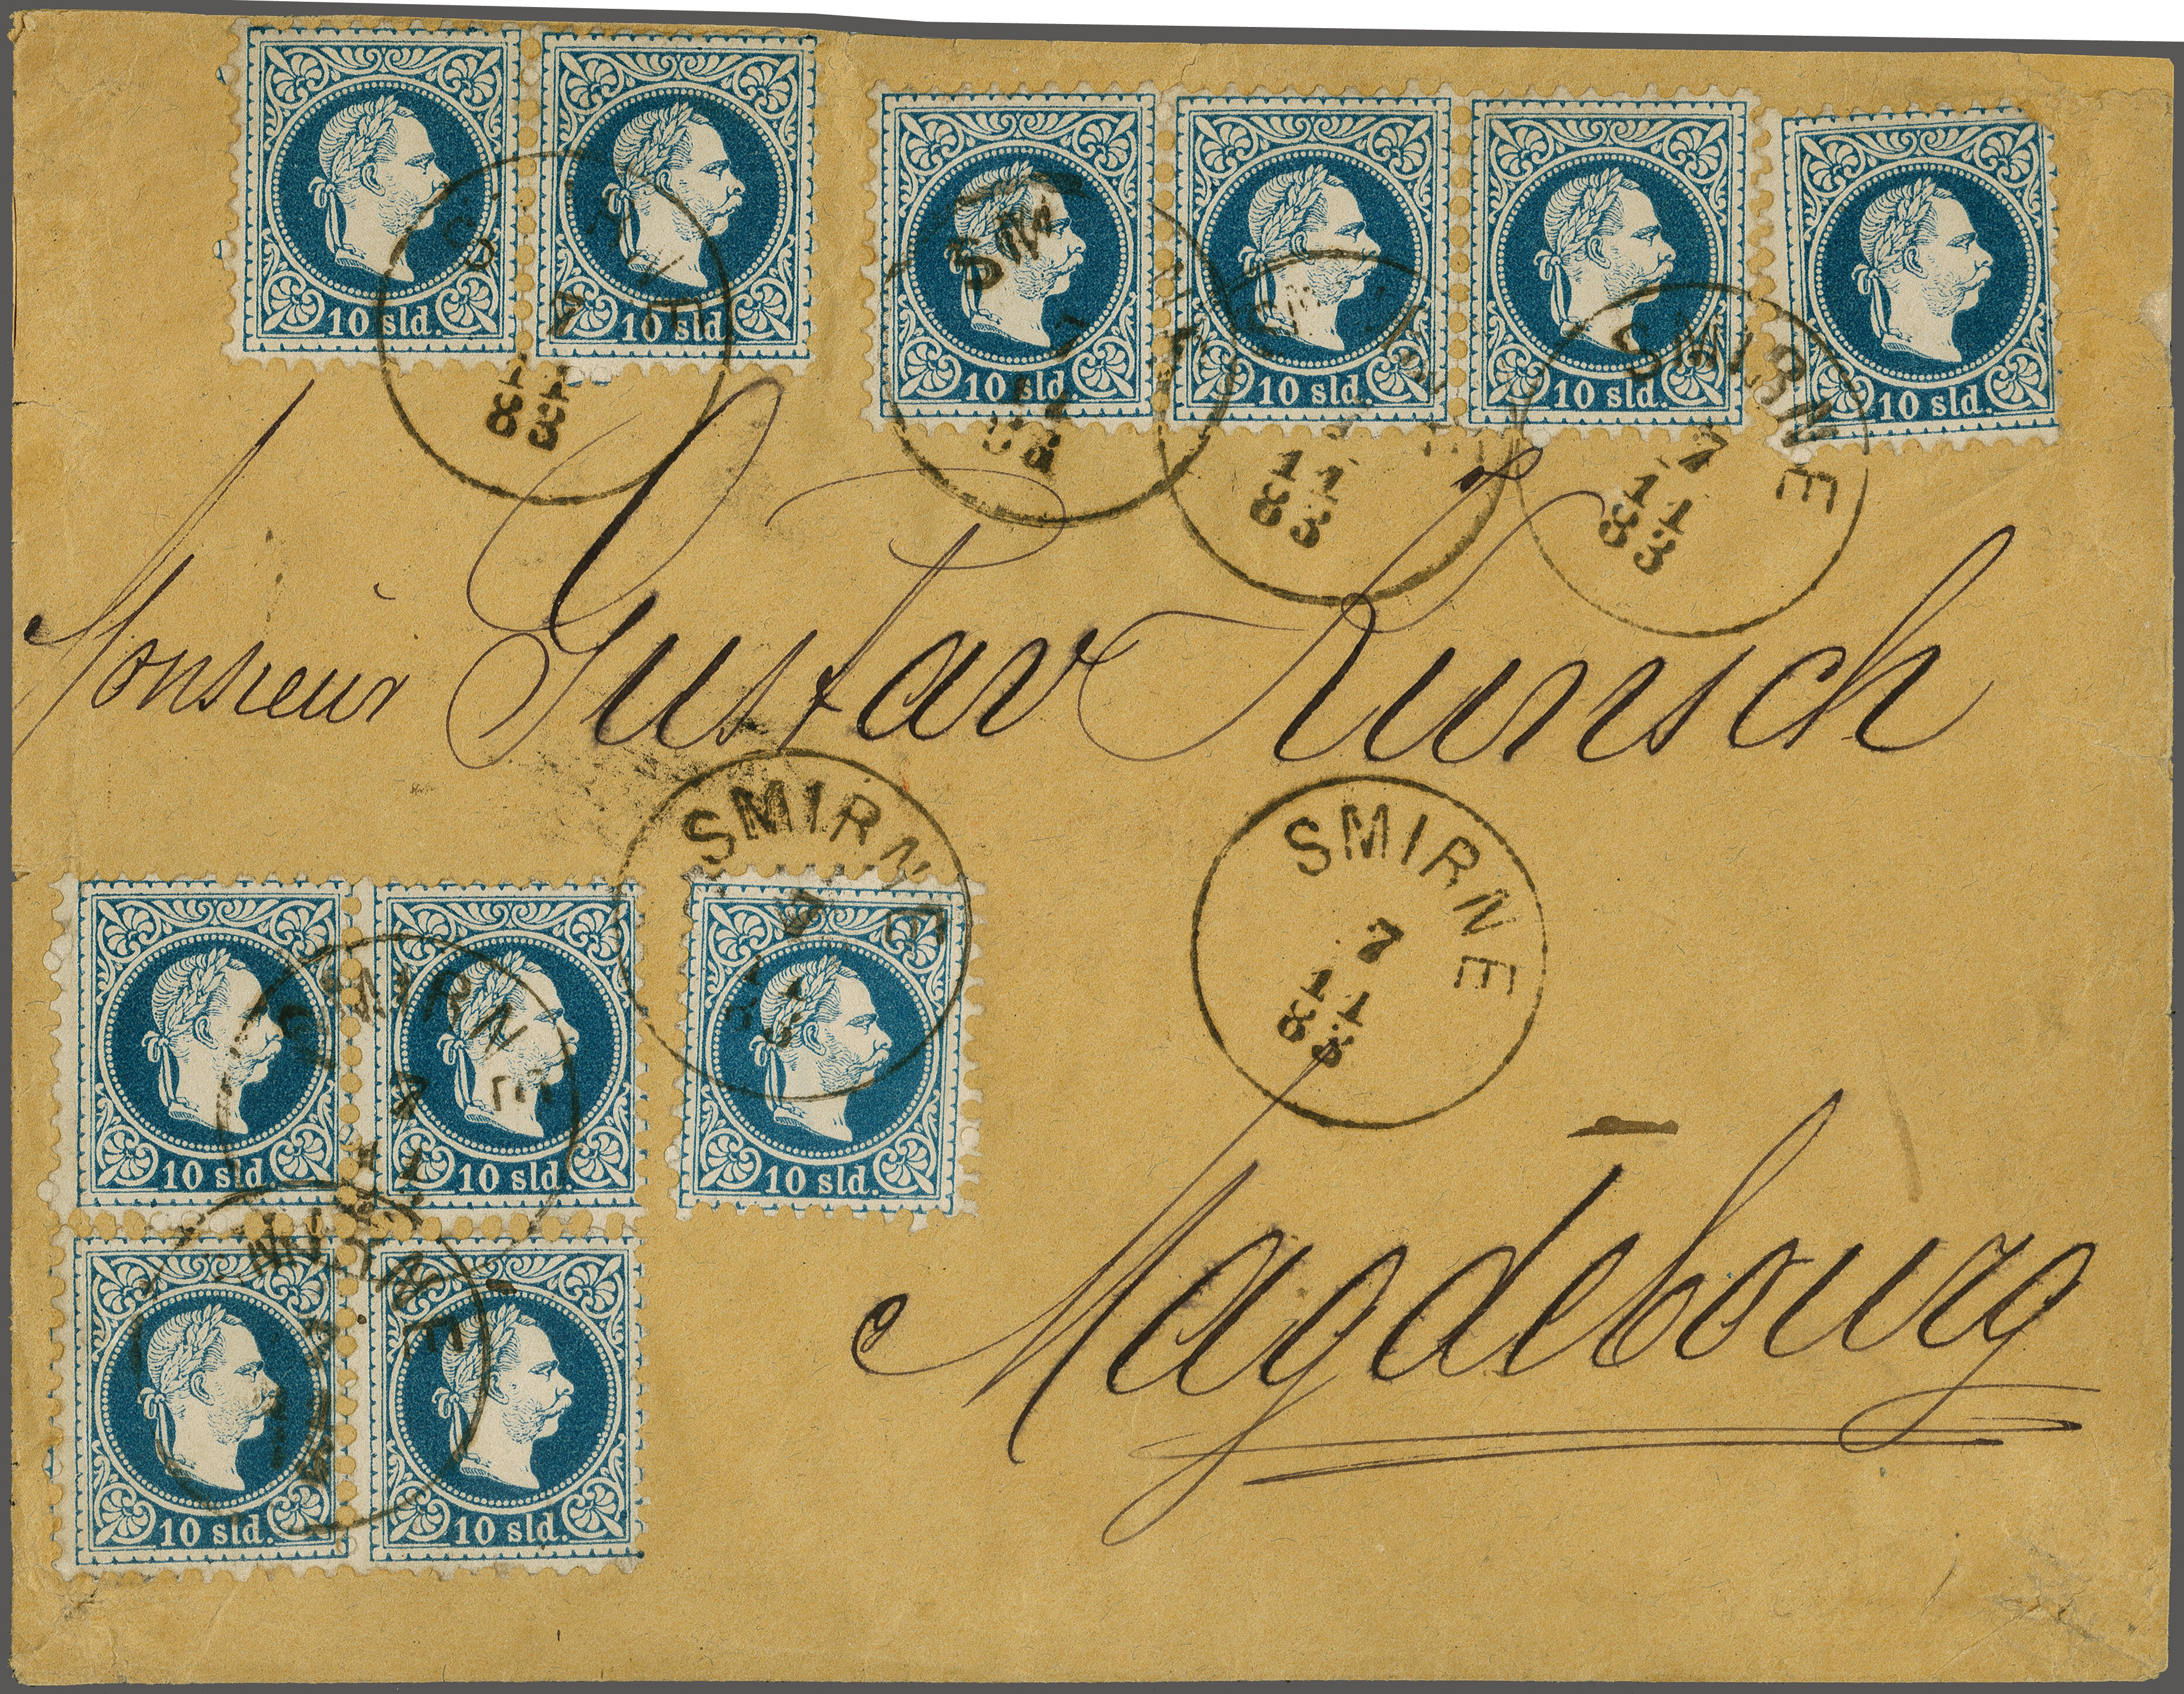 10 sld. 10 sld.
10 sld. 10 sld. 10 sld. 10 sld.
SMIRNE
7
11
83
SMIRNE
7
11
83
Monsieur Gustav Kunsch
SMIRNE
7
11
83
SMIRNE
7
11
83
10 sld. 10 sld. 10 sld.
SMIRNE
7
11
10 sld. 10 sld.
Magdebourg